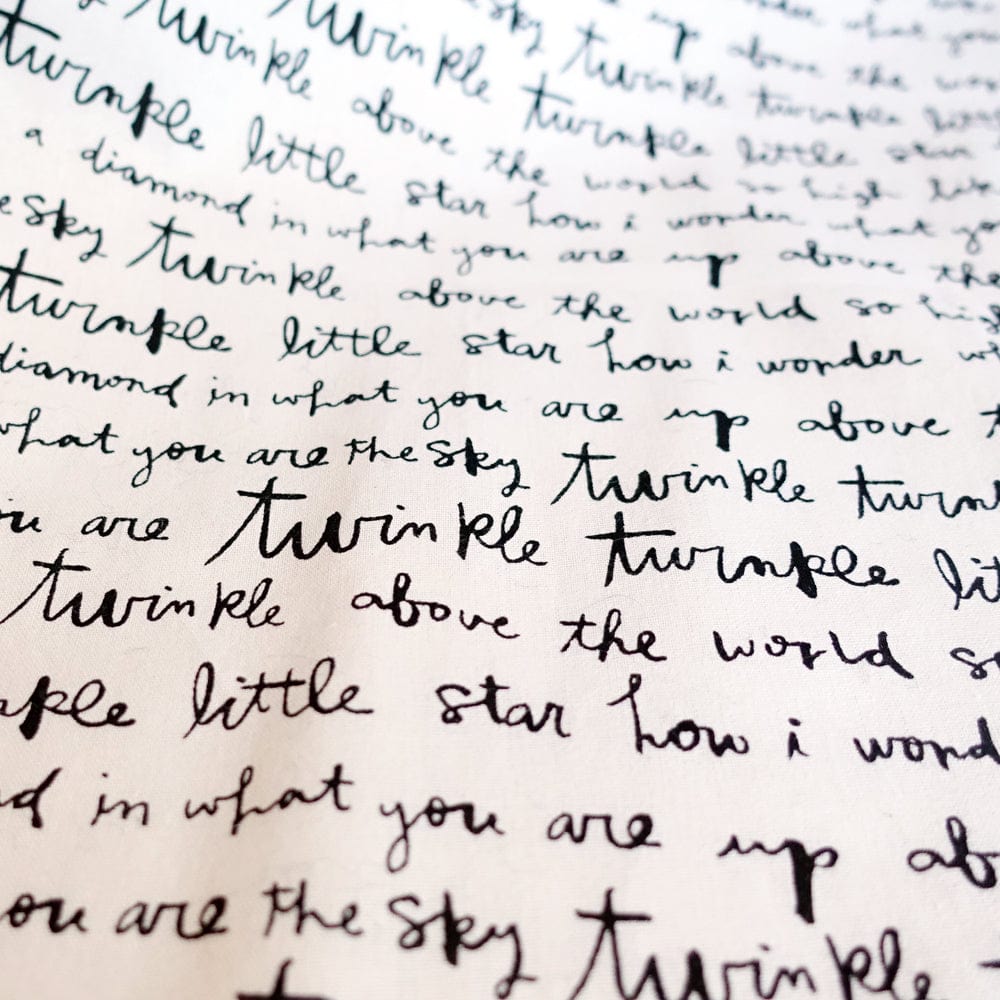 twinkle twinkle sky twinkle up above the world what you
twinkle above twinkle twinkle
twinkle little above the world so high little star
a diamond in what you star how i wonder what you
e sky twinkle are up above the
twinkle above the world so high
twinkle little star how i wonder wh
diamond in what you are up above t
what you are the sky twinkle twink
ou are twinkle twinkle lit
twinkle above the world so
nkle little star how i wond
nd in what you are up ab
ou are the sky twinkle